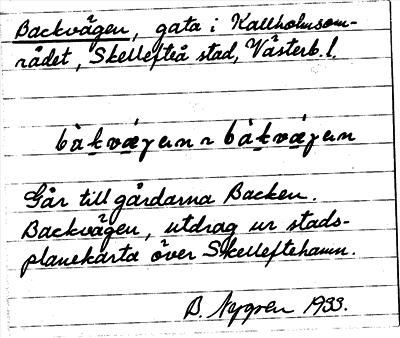 Backvägen, gata i Kallholmsom-
rådet, Skellefteå stad, Västerb. l.
bàkvægɛn ~ bàkvægɛn
Går till gårdarna Backen.
Backvägen, utdrag ur stads-
planekarta över Skelleftehamn.
B. Nygren 1933.